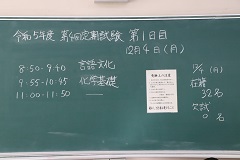 令和5年度 第4回定期試験 第1日目
12月4日(月)
8:50-9:40 言語文化
9:55-10:45 化学基礎
11:00-11:50 ——
12/4(月)
在籍
32名
欠試
0名